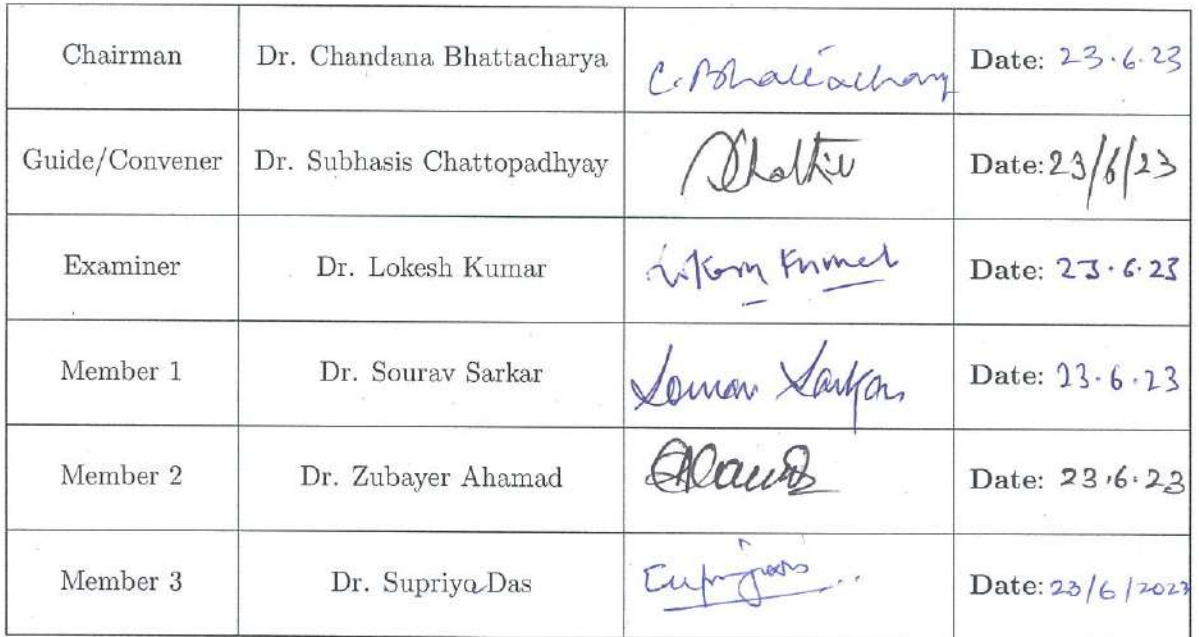 Chairman Dr. Chandana Bhattacharya C. Bhattacharya Date: 23.6.23
Guide/Convener Dr. Subhasis Chattopadhyay Date: 23/6/23
Examiner Dr. Lokesh Kumar Kumar Date: 23.6.23
Member 1 Dr. Sourav Sarkar Sourav Sarkar Date: 23.6.23
Member 2 Dr. Zubayer Ahamad Date: 23.6.23
Member 3 Dr. Supriya Das Date: 23/6/2023